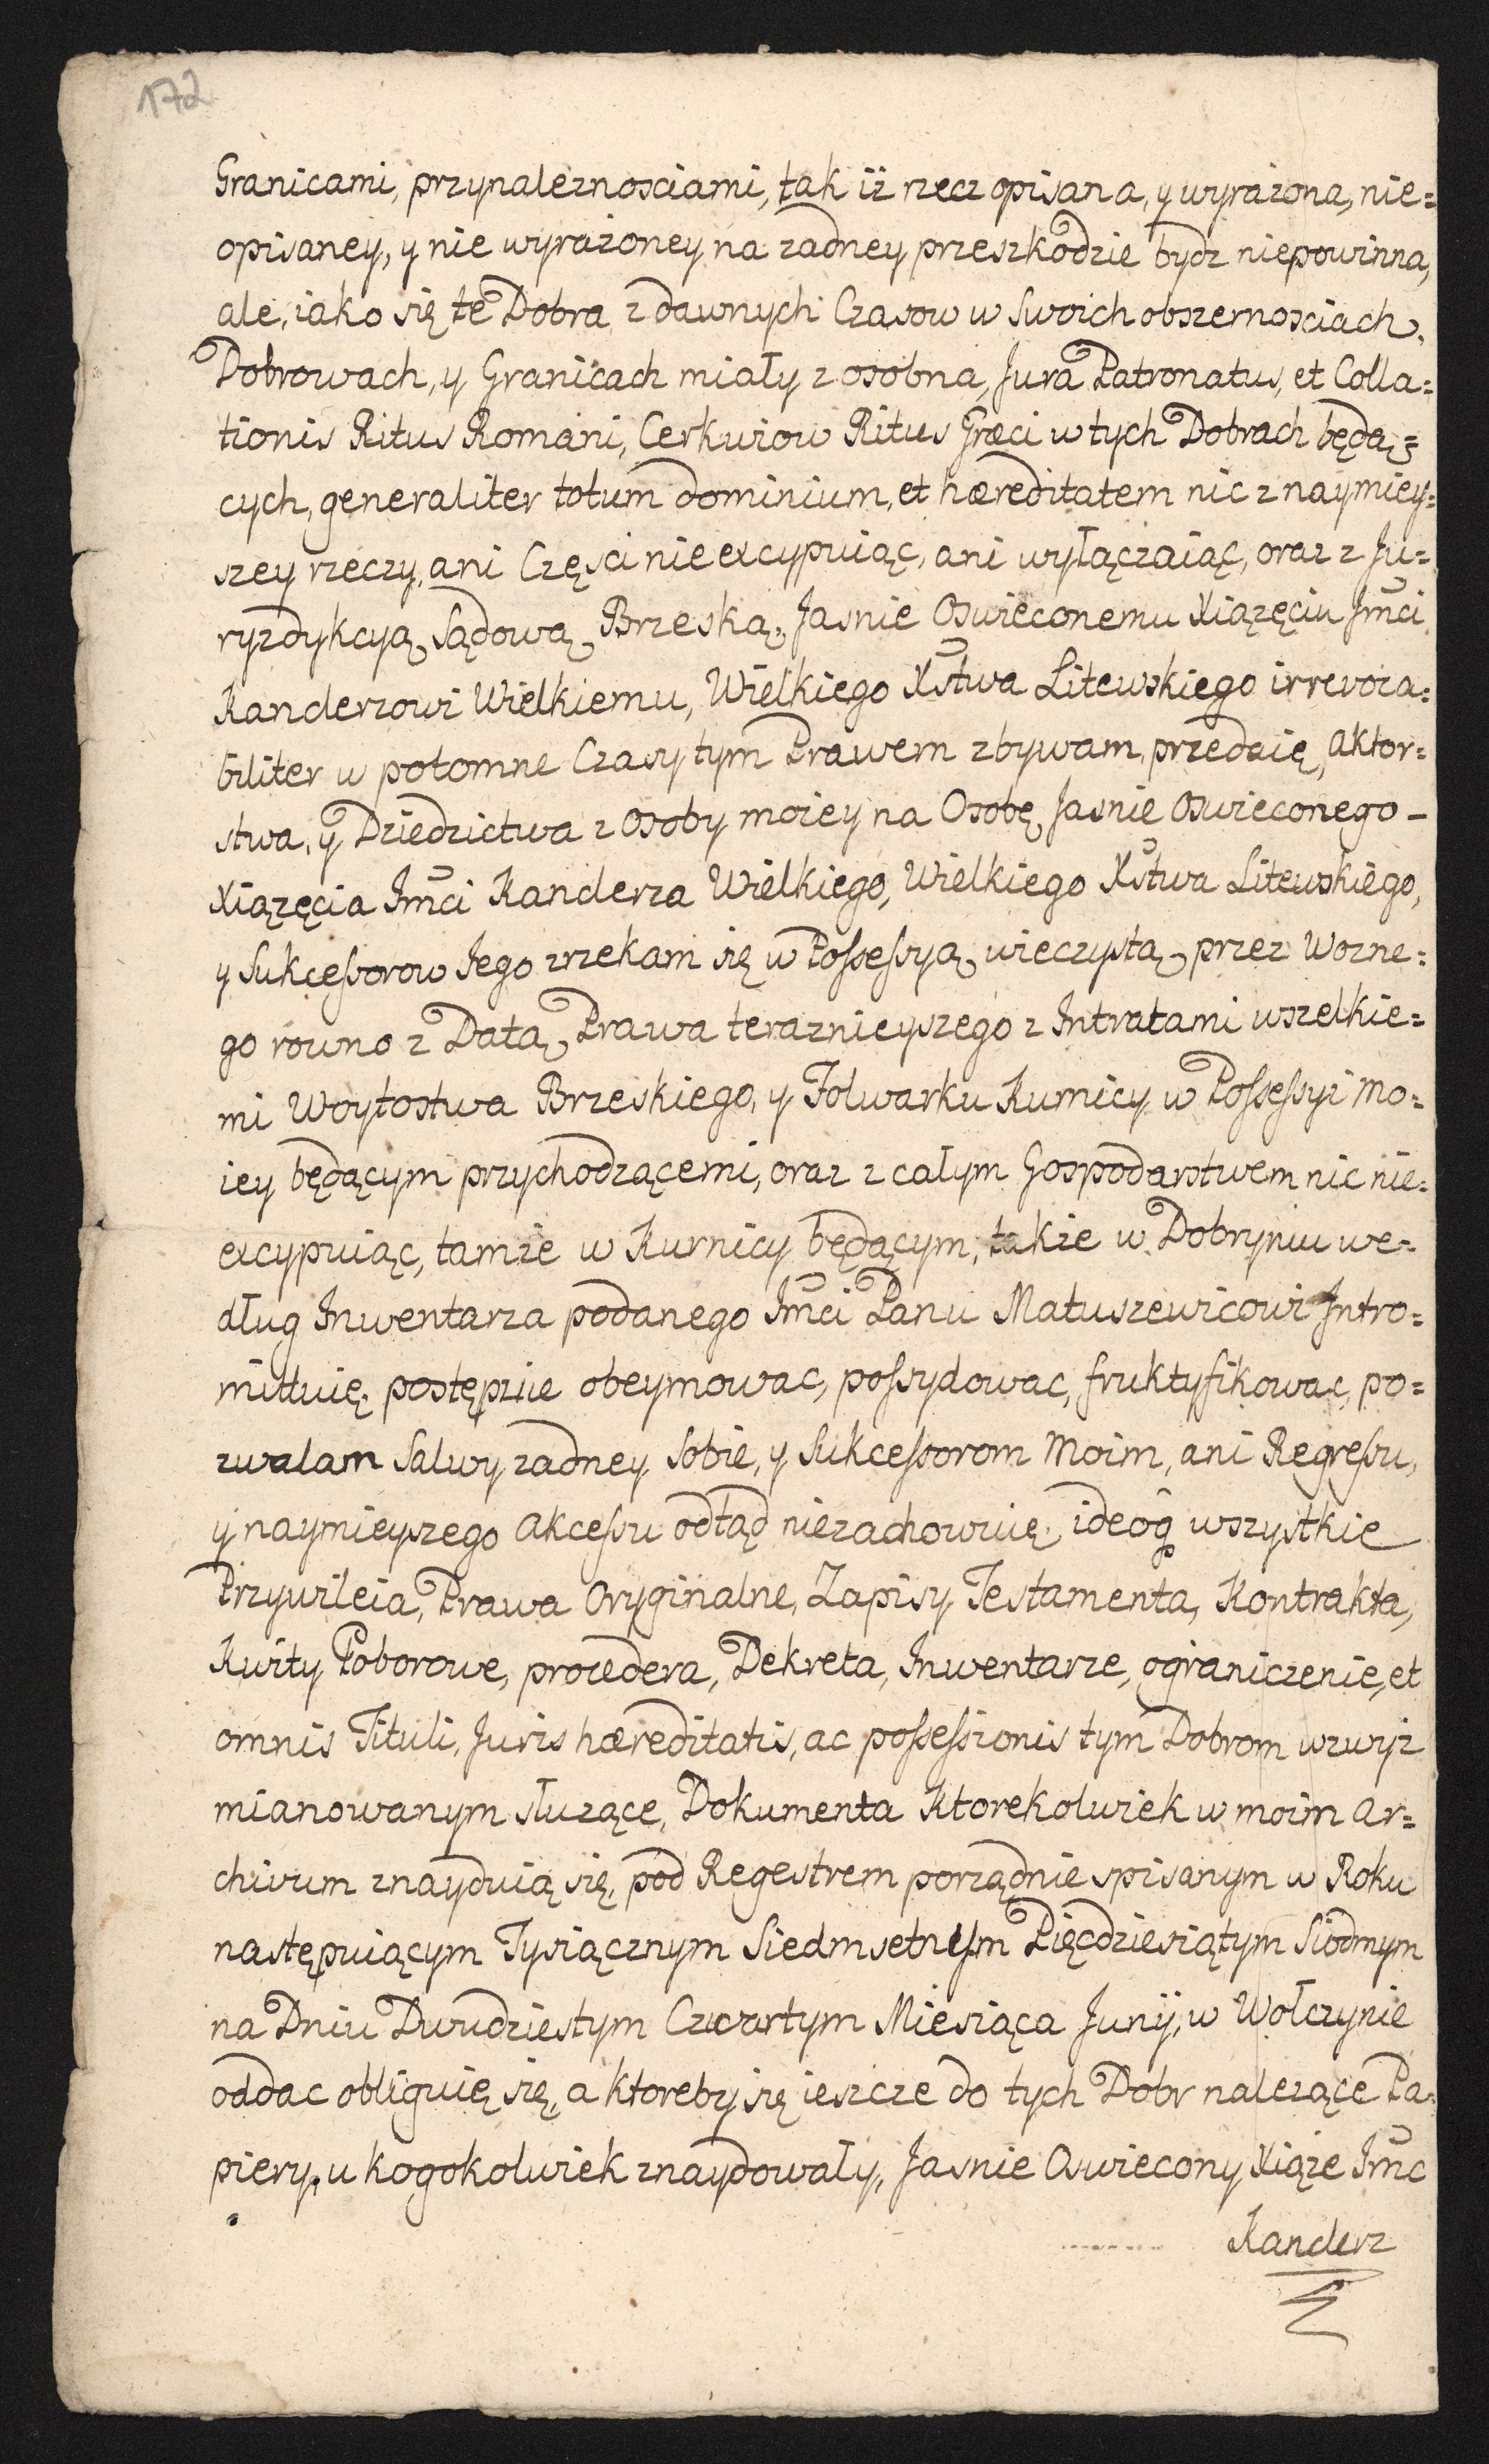 172
Granicami, przynaleznosciami, tak iż rzecz opisana, y wyrazona, nie=
opisaney, y nie wyrażoney na zadney przeszkodzie bydz niepowinna,
ale, iako się te Dobra z dawnych Czasow w Swoich obszernosciach,
Dobrowach, y Granicach miały z osobna, Jura Patronatus, et Colla=
tionis Ritus Romani, Cerkwiow Ritus Græci w tych Dobrach będą=
cych, generaliter totum dominium, et hæreditatem nic z naymiey=
szey rzeczy, ani Częsci nie excypuiąc, ani wyłączaiąc, oraz z Ju=
ryzdykcyą Sądową Brzeską, Jasnie Oswieconemu Xiązęciu Jmci
Kanclerzowi Wielkiemu, Wielkiego Xstwa Litewskiego irrevoca=
biliter w potomne Czasy tym Prawem zbywam, przedaię, Aktor=
stwa, y Dziedzictwa z Osoby moiey na Osobę Jasnie Oswieconego -
Xiązęcia Jmci Kanclerza Wielkiego, Wielkiego Xstwa Litewskiego,
y Sukcessorow Jego zrzekam się w Possessyą wieczystą przez Wozne=
go rowno z Datą Prawa teraznieyszego z Intratami wszelkie=
mi Woytostwa Brzeskiego, y Folwarku Kurnicy w Possessyi Mo=
iey będącym przychodzącemi, oraz z całym Gospodarstwem nic nie=
excypuiąc, tamze w Kurnicy będącym, takze w Dobryniu we=
dług Inwentarza podanego Jmci Panu Matuszewicowi Intro=
mittuię, postępnie obeymowac, possydowac, fruktyfikowac, po=
zwalam Salwy zadney Sobie, y Sukcessorom Moim, ani Regressu,
y naymieyszego Akcessu odtąd niezachowuię, ideoq wszystkie
Przywileia, Prawa Oryginalne, Zapisy Testamenta, Kontrakta,
Kwity Poborowe, procedera, Dekreta, Inwentarze, ograniczenie, et
omnis Tituli, Juris hæreditatis, ac possessionis tym Dobrom wzwyz
mianowanym słuzące, Dokumenta Ktorekolwiek w moim Ar=
chivum znayduią się, pod Regestrem porządnie spisanym w Roku
następuiącym Tysiącznym Siedmsetnym Pięcdziesiątym Siodmym
na Dniu Dwudziestym Czwartym Miesiąca Junij, w Wołczynie
oddac obliguię się, a ktoreby się ieszcze do tych Dobr nalezące Pa=
piery, u kogokolwiek znaydowały, Jasnie Oswiecony Xiąze Jmc
Kanclerz